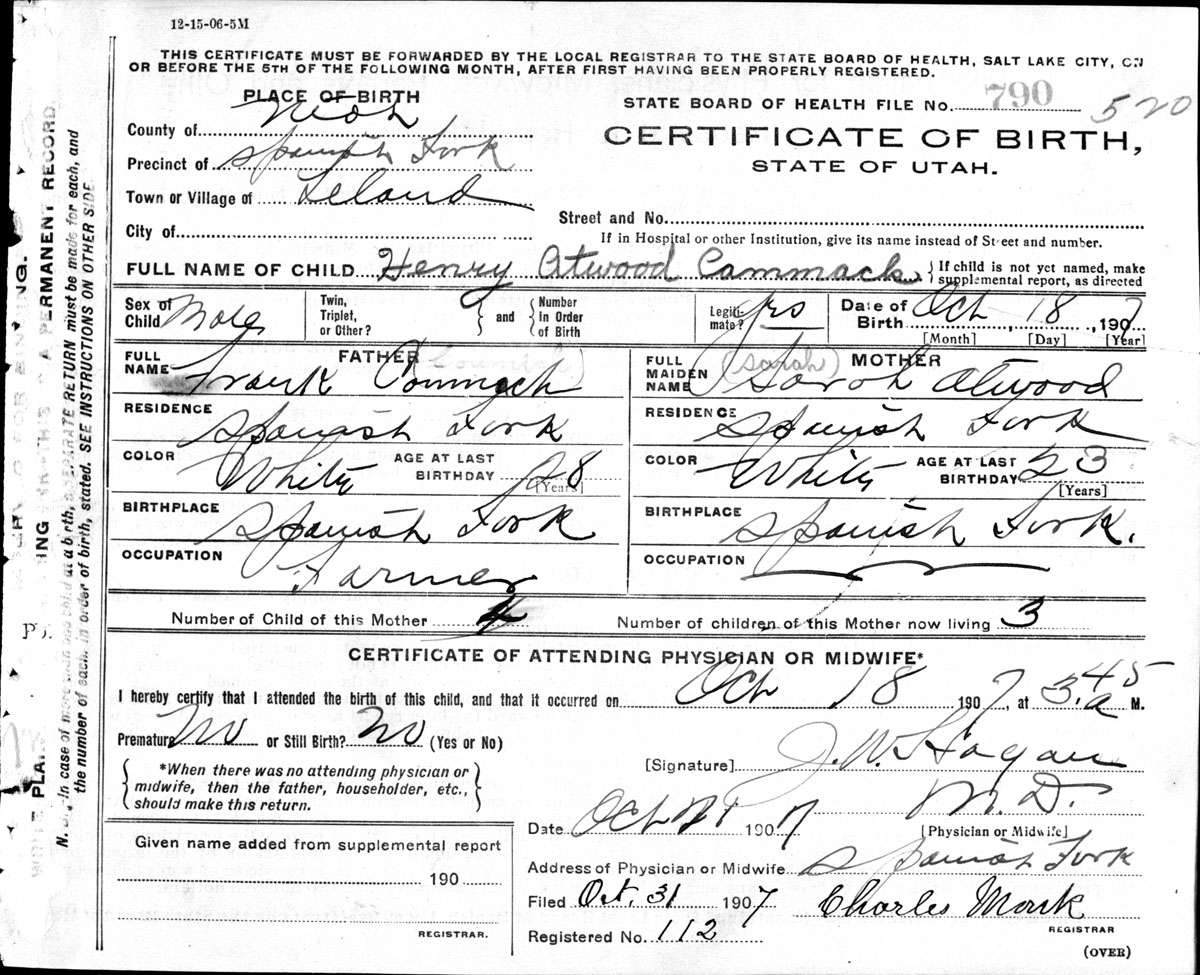 12-15-06-5M
THIS CERTIFICATE MUST BE FORWARDED BY THE LOCAL REGISTRAR TO THE STATE BOARD OF HEALTH, SALT LAKE CITY, ON
OR BEFORE THE 5TH OF THE FOLLOWING MONTH, AFTER FIRST HAVING BEEN PROPERLY REGISTERED.
PLACE OF BIRTH
STATE BOARD OF HEALTH FILE No. 790 520
County of Utah
CERTIFICATE OF BIRTH,
Precinct of Spanish Fork
STATE OF UTAH.
Town or Village of Leland
Street and No.
City of
If in Hospital or other Institution, give its name instead of Street and number.
FULL NAME OF CHILD Henry Atwood Cammack. { If child is not yet named, make supplemental report, as directed
Sex of Child Male Twin, Triplet, or Other? } and { Number in Order of Birth Legiti- mate? yes Date of Birth Oct 18, 1907
[Month] [Day] [Year]
FULL NAME FATHER Frank Cammack
FULL MAIDEN NAME (Sarah) MOTHER Sarah Atwood
RESIDENCE Spanish Fork RESIDENCE Spanish Fork
COLOR White AGE AT LAST BIRTHDAY 28 [Years] COLOR White AGE AT LAST BIRTHDAY 23 [Years]
BIRTHPLACE Spanish Fork BIRTHPLACE Spanish Fork.
OCCUPATION Farmer OCCUPATION
Number of Child of this Mother 4 Number of children of this Mother now living 3
CERTIFICATE OF ATTENDING PHYSICIAN OR MIDWIFE*
I hereby certify that I attended the birth of this child, and that it occurred on Oct 18 1907, at 3.45 a M.
Premature No or Still Birth? No (Yes or No)
[Signature] J. W. Hagan
M. D.
{ *When there was no attending physician or
midwife, then the father, householder, etc.,
should make this return. }
Date Oct 1907
[Physician or Midwife]
Given name added from supplemental report
190
REGISTRAR.
Address of Physician or Midwife Spanish Fork
Filed Oct. 31 1907 Charles Monk
REGISTRAR
Registered No. 112
(OVER)
PERMANENT RECORD.
N. B. In case of more than one child at a birth, a SEPARATE RETURN must be made for each, and
the number of each, in order of birth, stated. SEE INSTRUCTIONS ON OTHER SIDE.